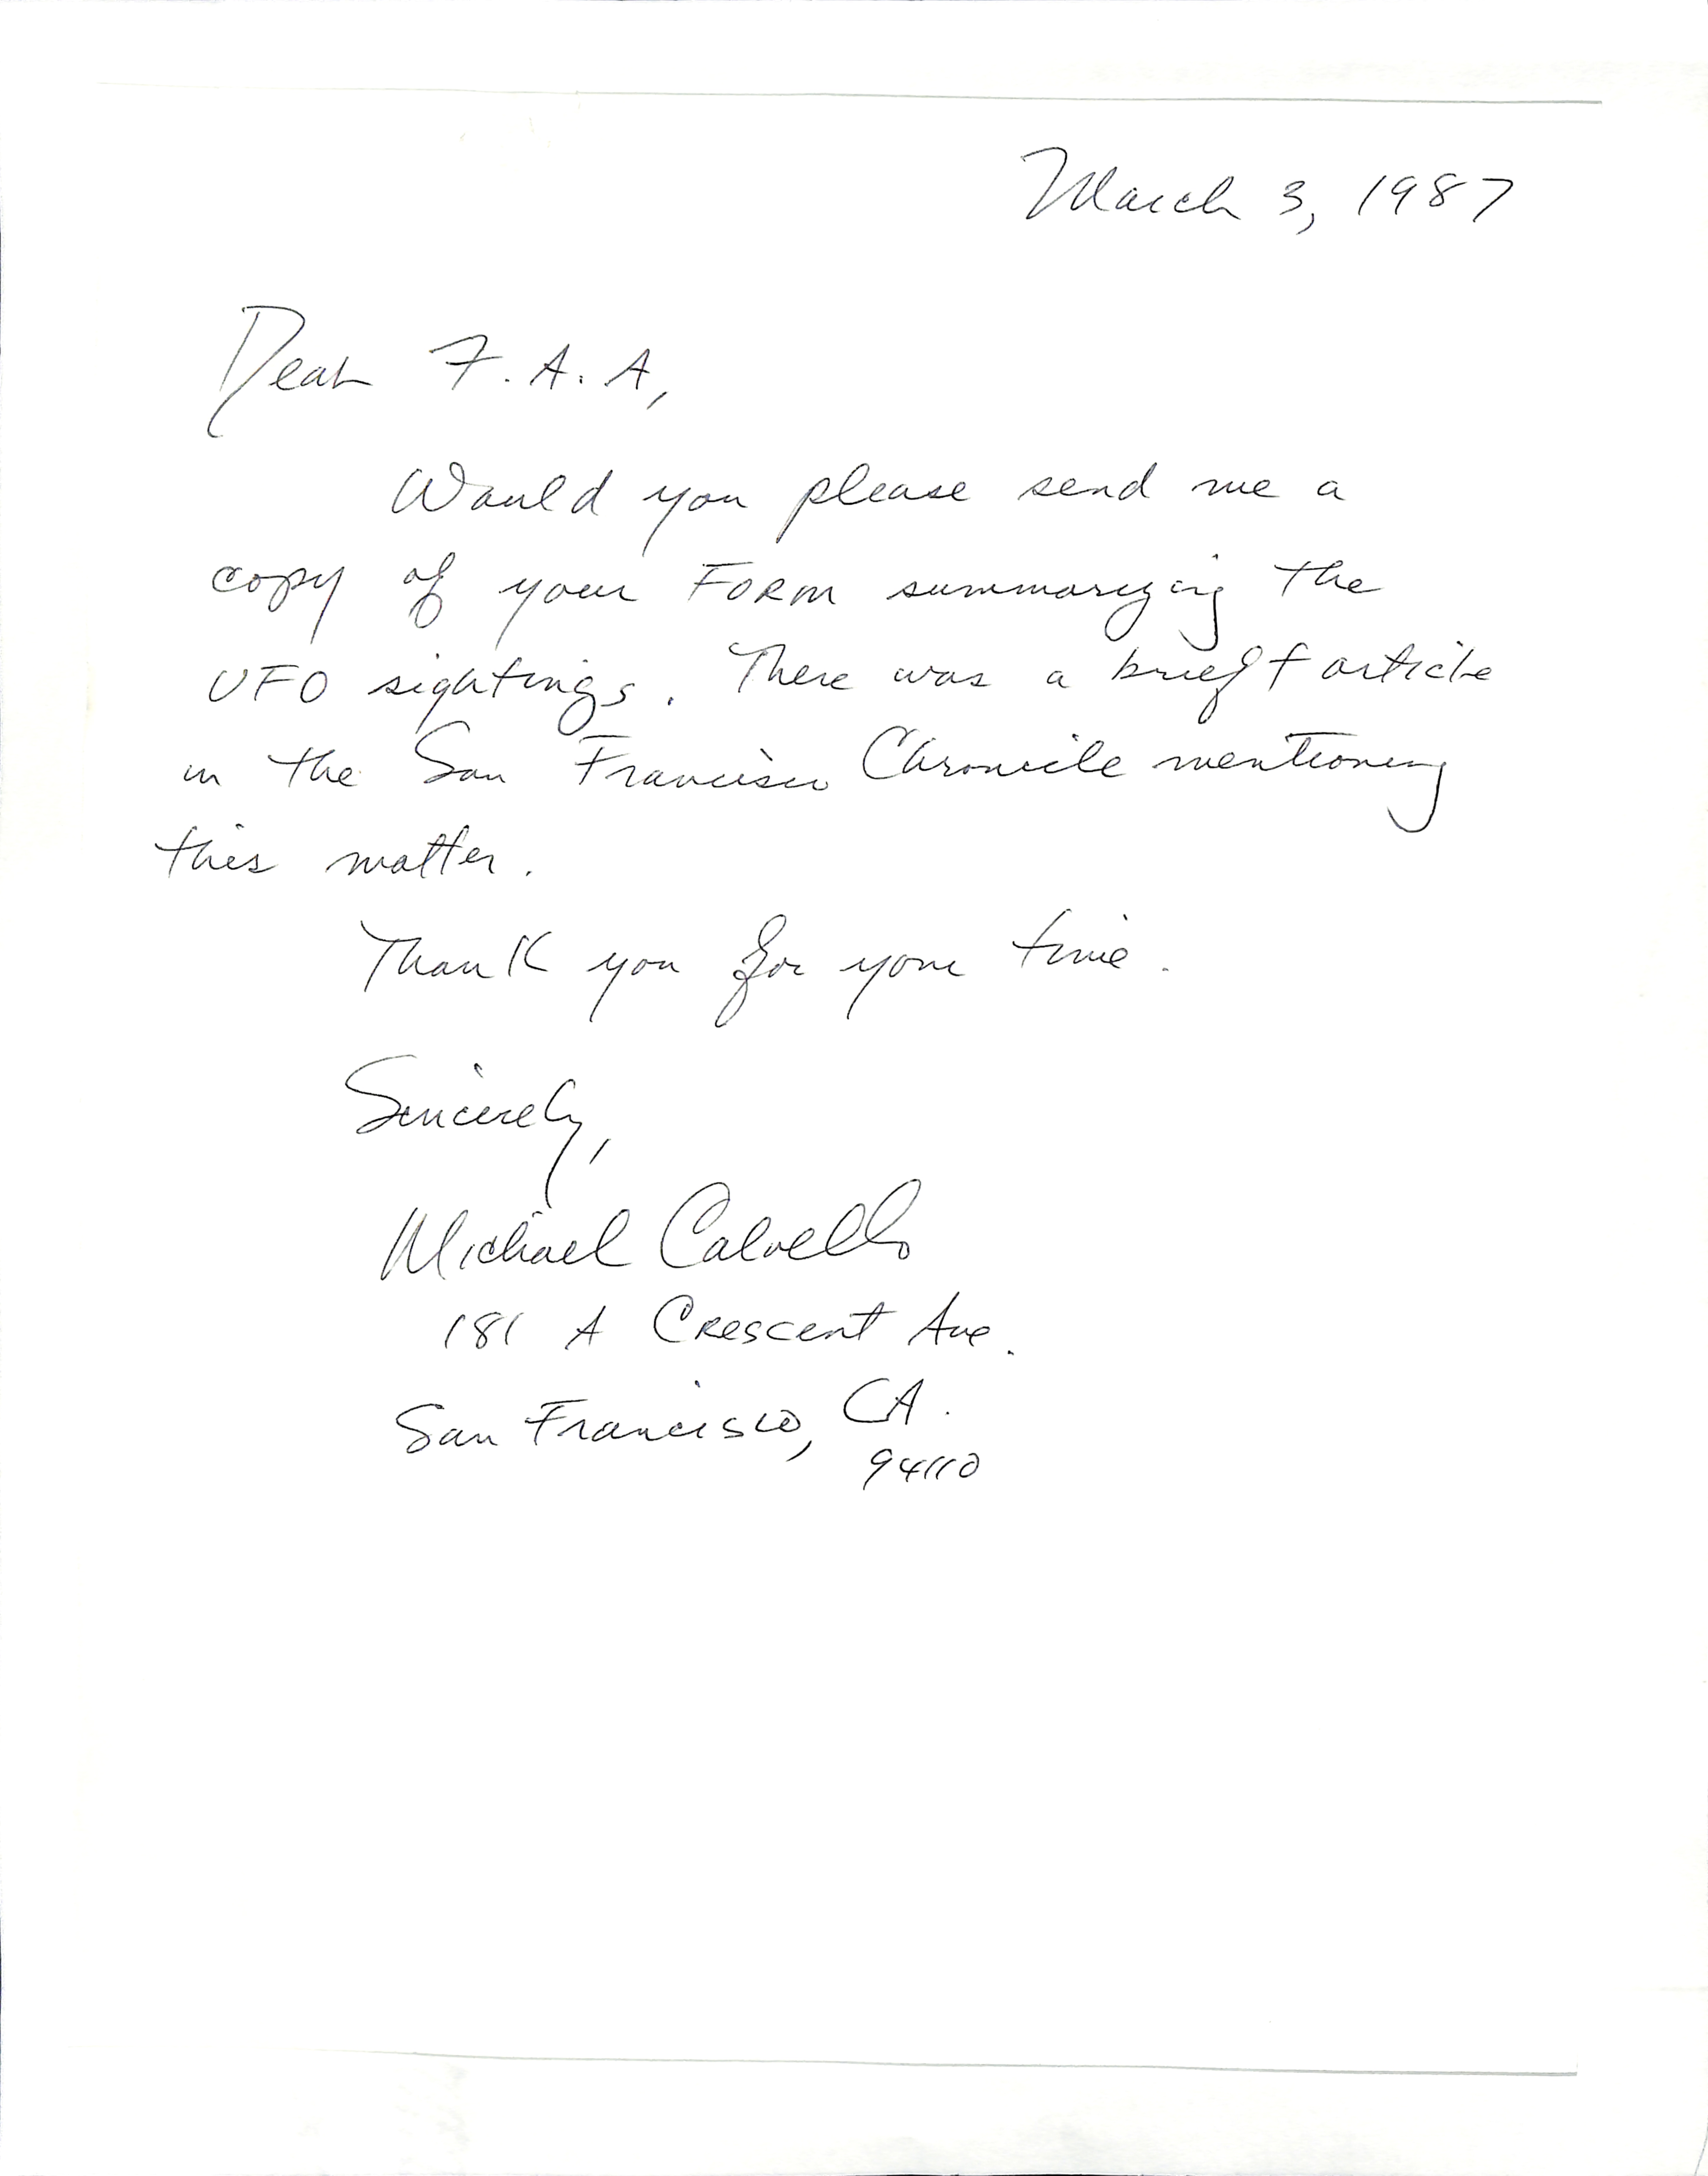 March 3, 1987
Dear F. A. A,
Would you please send me a
copy of your FORM summarizing the
UFO sightings. There was a brief article
in the San Francisco Chronicle mentioning
this matter.
Thank you for your time.
Sincerely,
Michael Calvello
181 A Crescent Ave.
San Francisco, CA.
94110